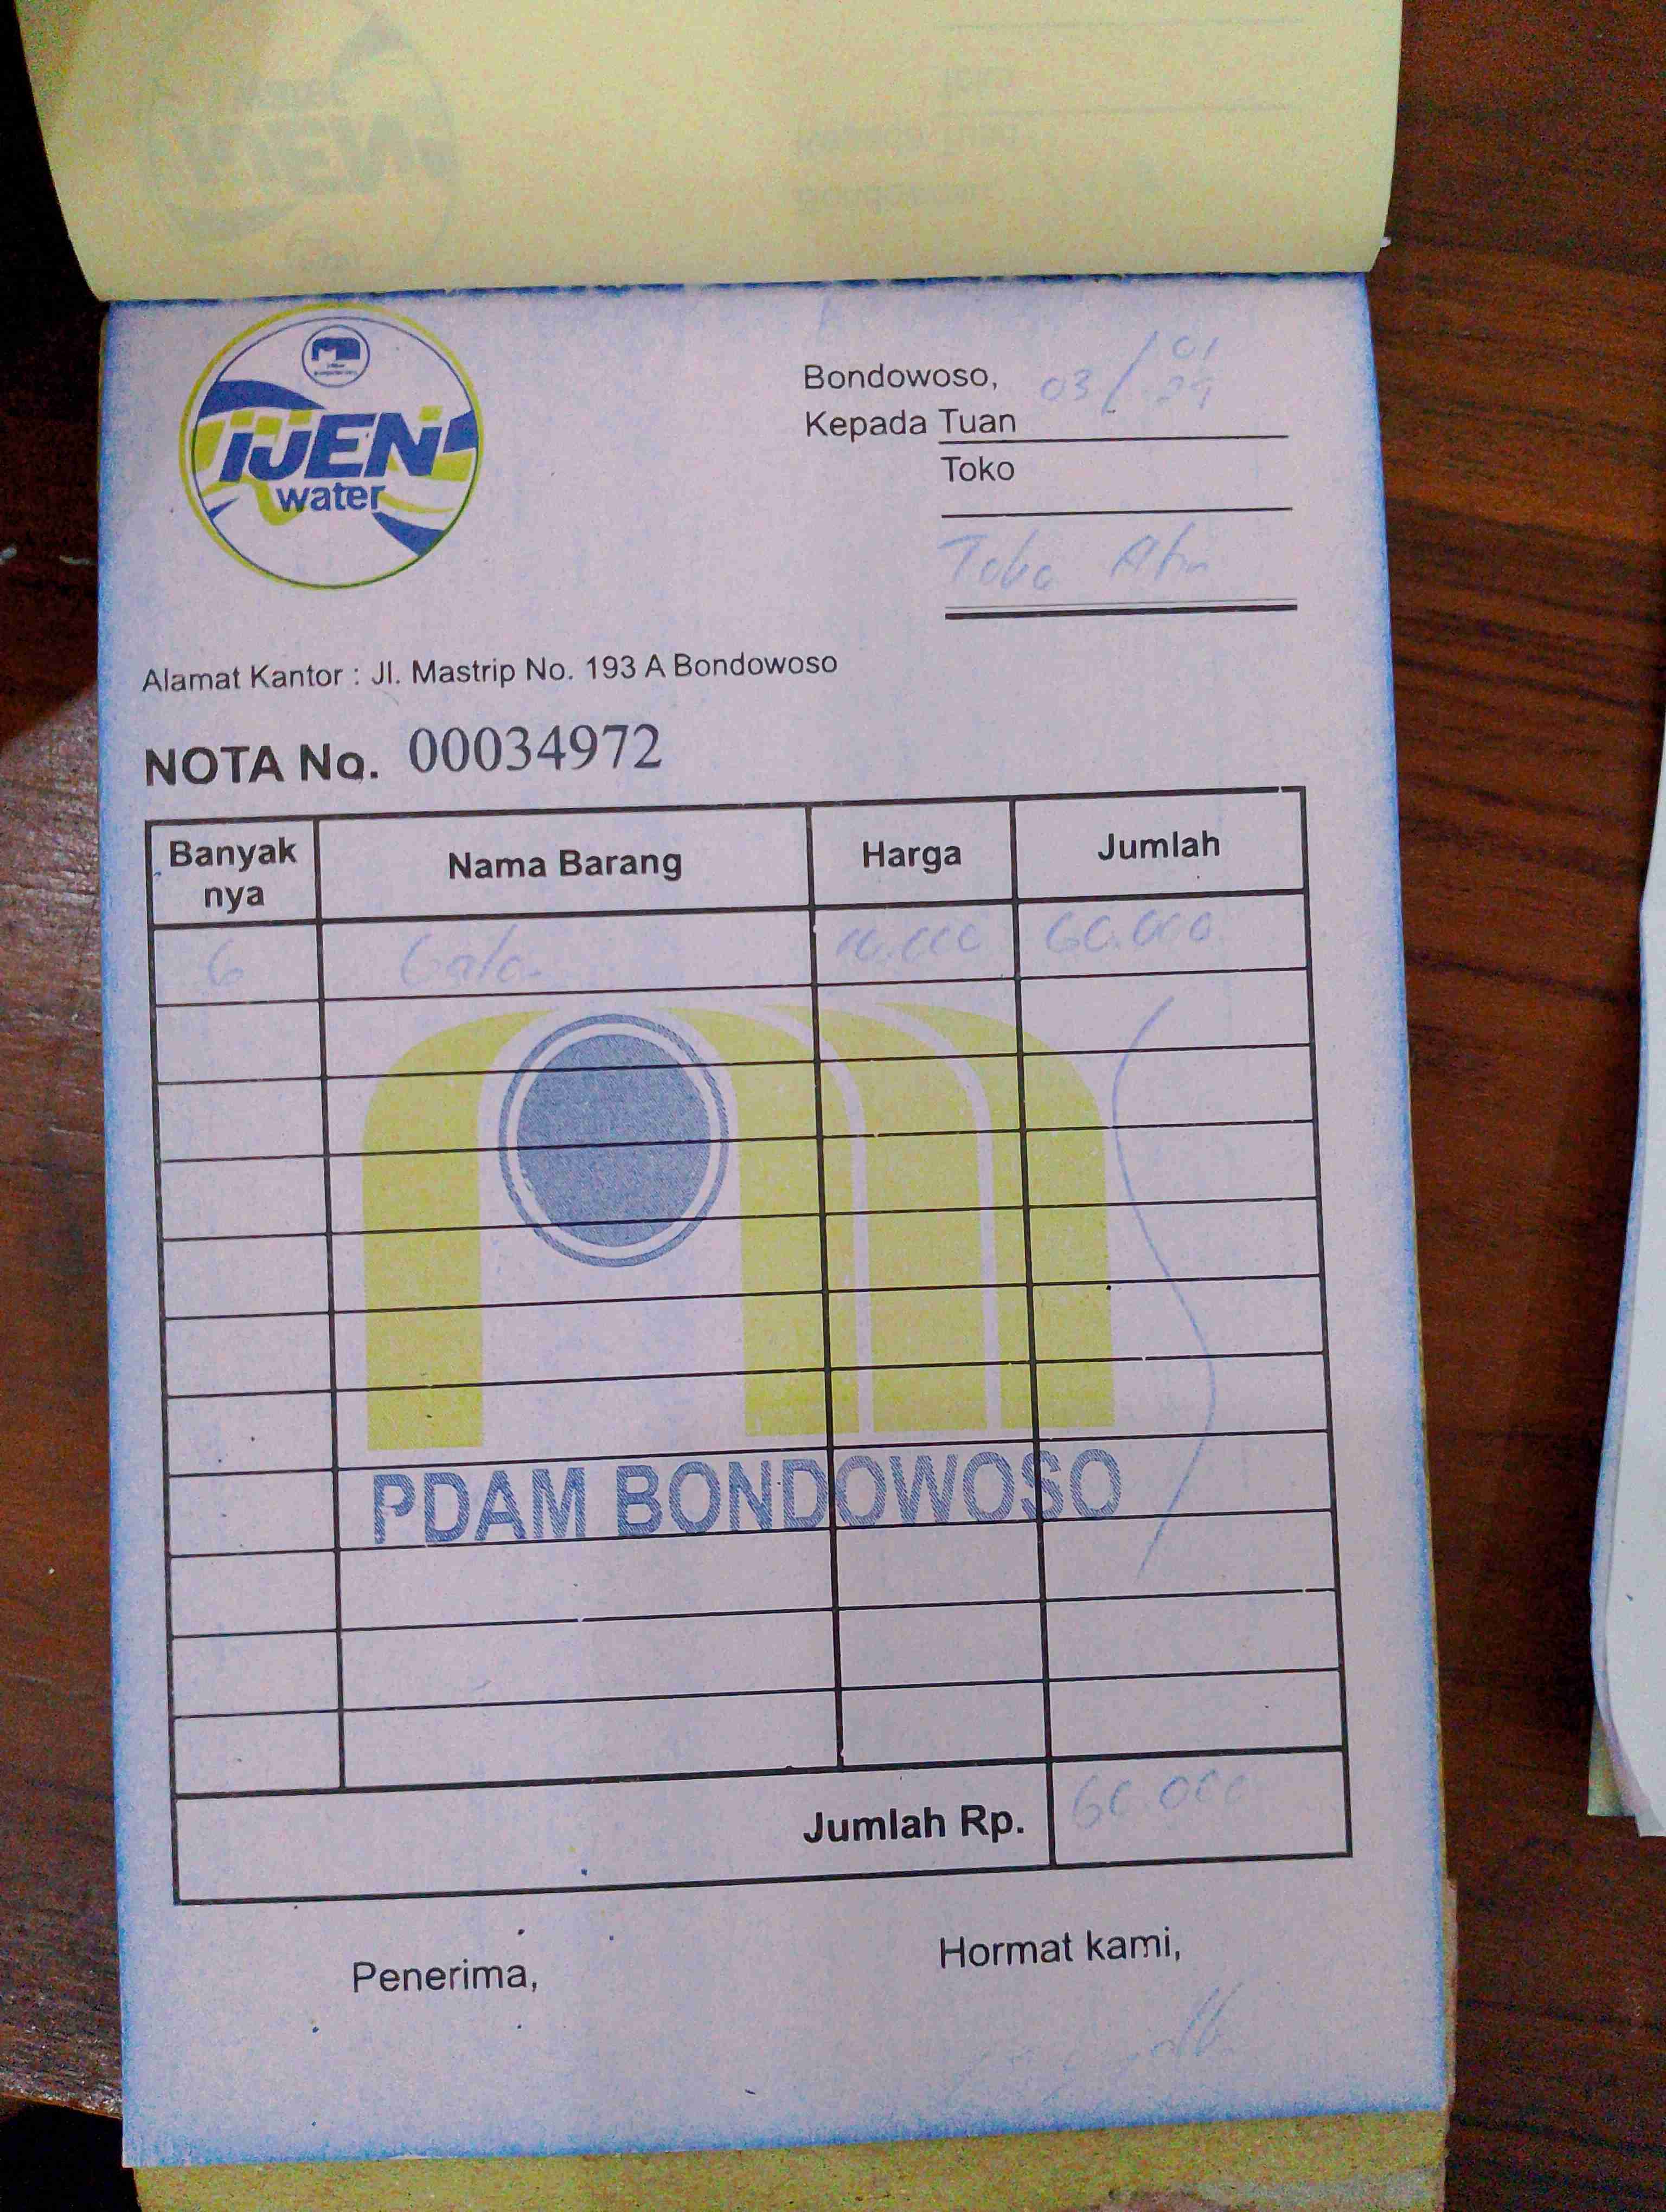 IJEN
water
Bondowoso, 03/01
Kepada Tuan
Toko
Toko
Alamat Kantor : Jl. Mastrip No. 193 A Bondowoso
NOTA No. 00034972
Banyak nya Nama Barang Harga Jumlah
6 10.000 60.000
PDAM BONDOWOSO
Jumlah Rp. 60.000
Penerima, Hormat kami,